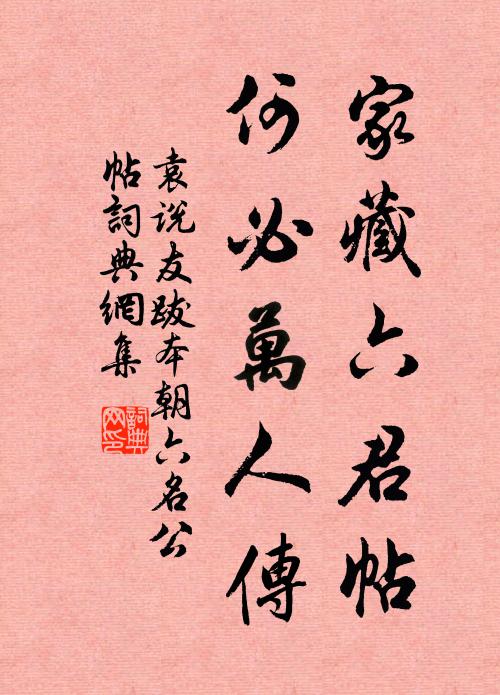 家藏六君帖
何必萬人傳
袁说友跋本朝六名公
帖詞典網集
詞典
网印